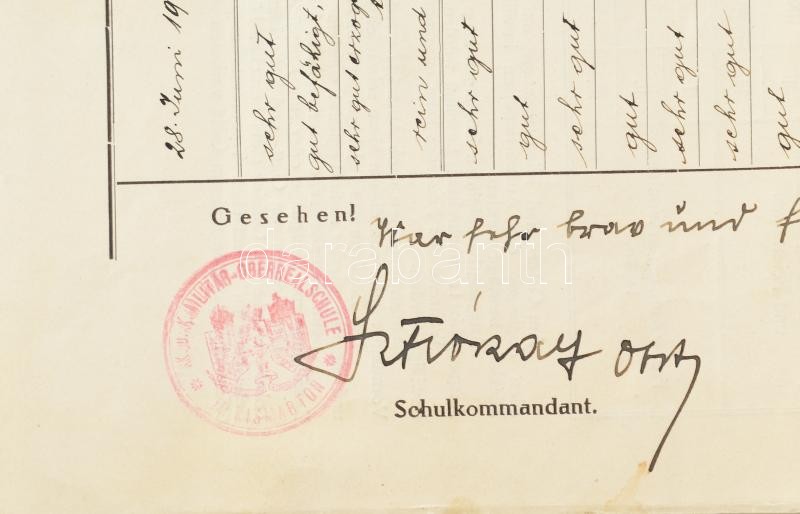 28. Juni 19
sehr gut
gut befähigt,
sehr gut erzog
rein und
sehr gut
gut
sehr gut
gut
sehr gut
sehr gut
gut
Gesehen!
War sehr brav und f
K.u.K. MILITÄR-OBERREALSCHULE
KISMARTON
darabanth
Sztrókay Obst
Schulkommandant.